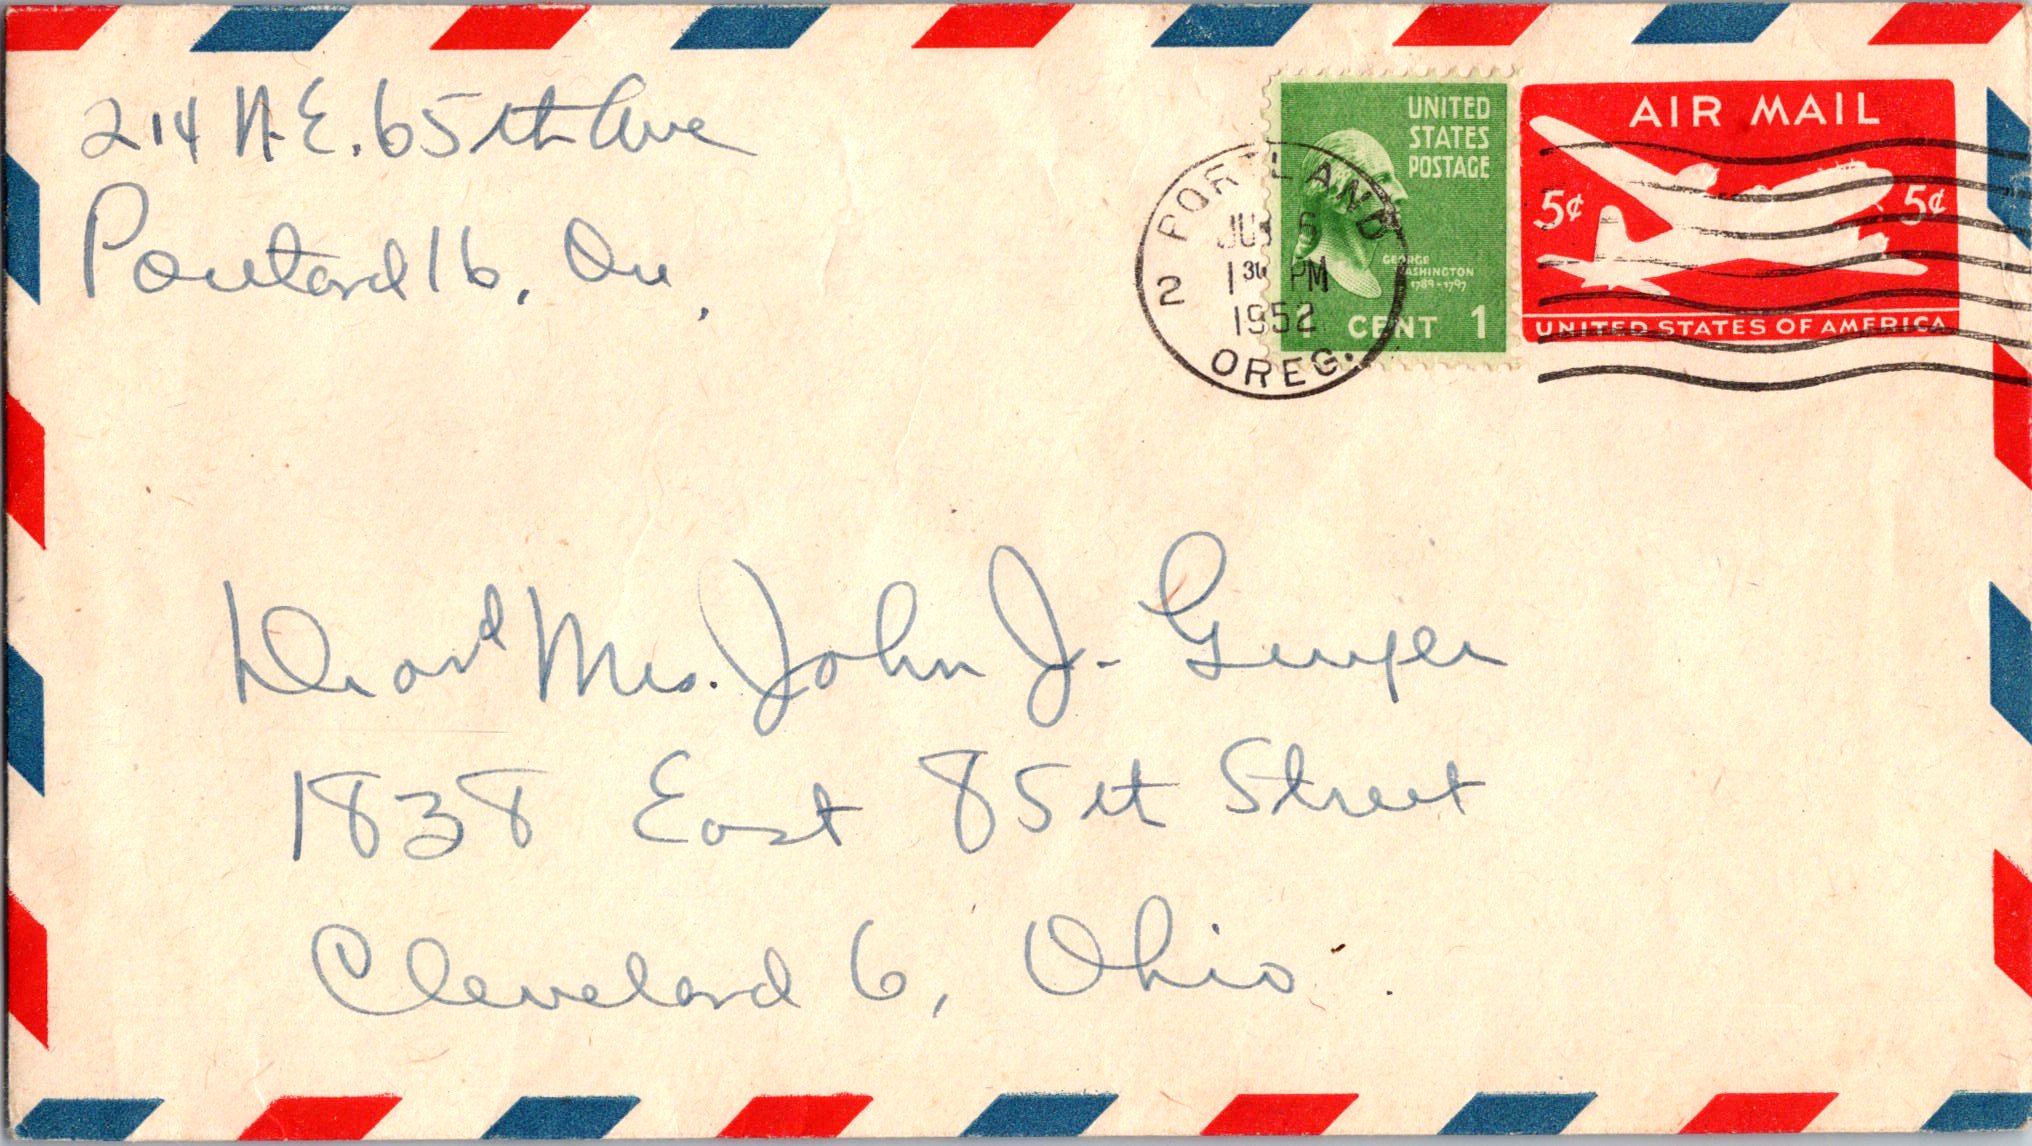 214 N.E. 65th Ave
Portland 16, Ore.
UNITED
STATES
POSTAGE
GEORGE
WASHINGTON
1789-1797
1 CENT 1
AIR MAIL
5¢ 5¢
UNITED STATES OF AMERICA
PORTLAND
6
1 30 PM
2
1952
OREG.
and Mrs. John J.
1838 East 85th Street
Cleveland 6, Ohio.